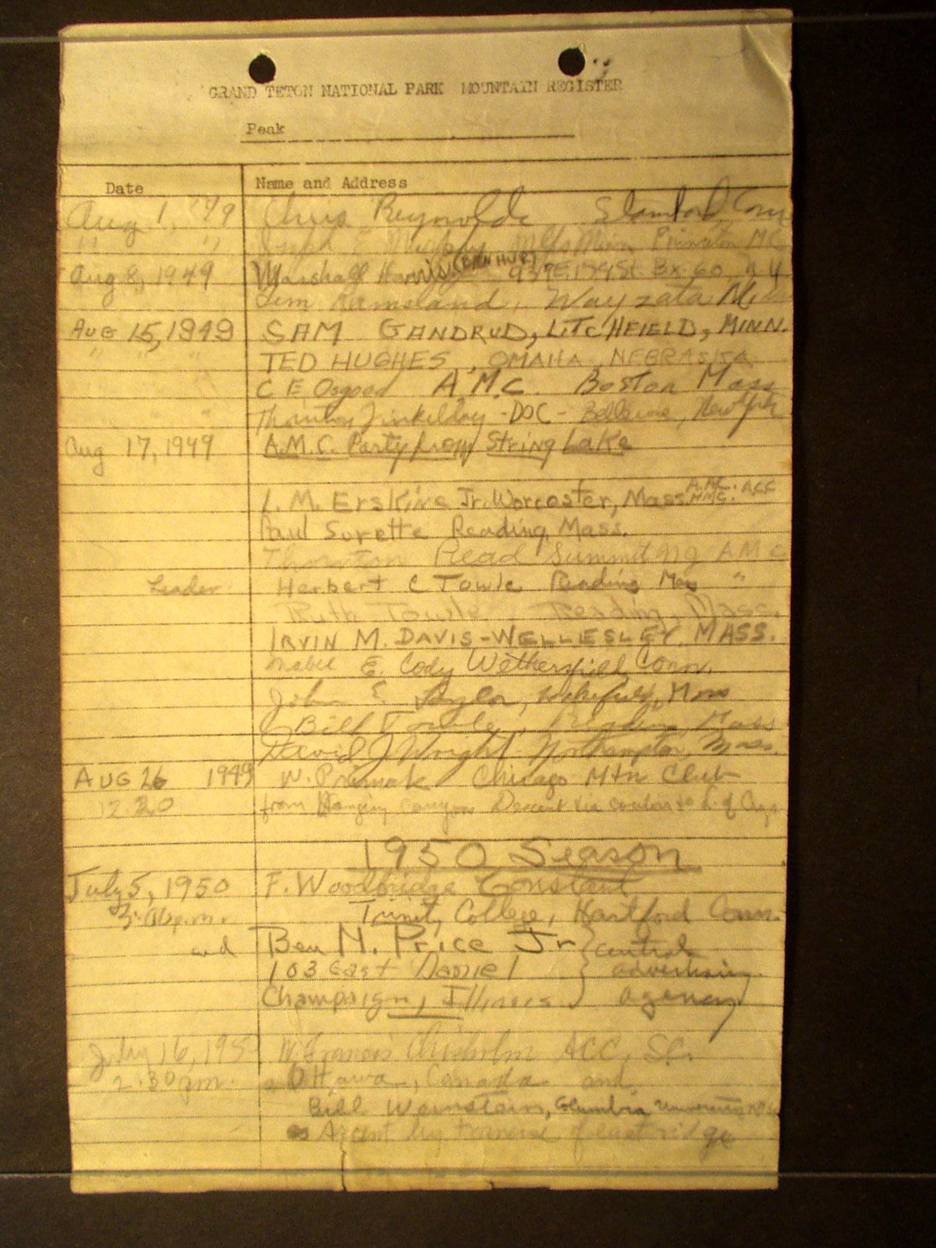 GRAND TETON NATIONAL PARK MOUNTAIN REGISTER
Peak
Date Name and Address
Aug 1, '49 Chris Reynolds Stamford, Conn
" " Joseph E Murphy Mpls Minn Princeton MC
Aug 8, 1949 Marshall Harris (BEN HUR) 939 E 179 St. Bx 60, N.Y.
Jim Ramsland, Wayzata Minn
AUG 15, 1949 SAM GANDRUD, LITCHFIELD, MINN.
" " " TED HUGHES, OMAHA, NEBRASKA
C E Osgood A.M.C. Boston Mass
-DOC- New York
Aug 17, 1949 A.M.C. Party from String Lake
L. M. Erskine Jr. Worcester, Mass. A.M.C. ACC
Paul Surette Reading, Mass.
Thornton Read Summit NJ AMC
Leader Herbert C Towle Reading Mass "
Ruth Towle Reading, Mass.
IRVIN M. DAVIS - WELLESLEY, MASS.
Mabel E. Cody Wethersfield Conn.
John E. Taylor, Wakefield, Mass
Bill Towle, Reading Mass
David J Wright - Northampton, Mass.
AUG 26 1949 W. Primak Chicago Mtn Club
12:20 from Hanging Canyon Descent via couloir to L. of Crags
1950 Season
July 5, 1950 F. Woodbridge Constant
p.m. Trinity College, Hartford Conn.
and Ben N. Price Jr } central
103 East Daniel } advertising
Champaign, Illinois } agency
July 16, 1950 W. Francis Chisholm ACC, S.C.
2:30 pm. Ottawa, Canada and
Bill Weinstein, Columbia University
Ascent by traverse of east ridge